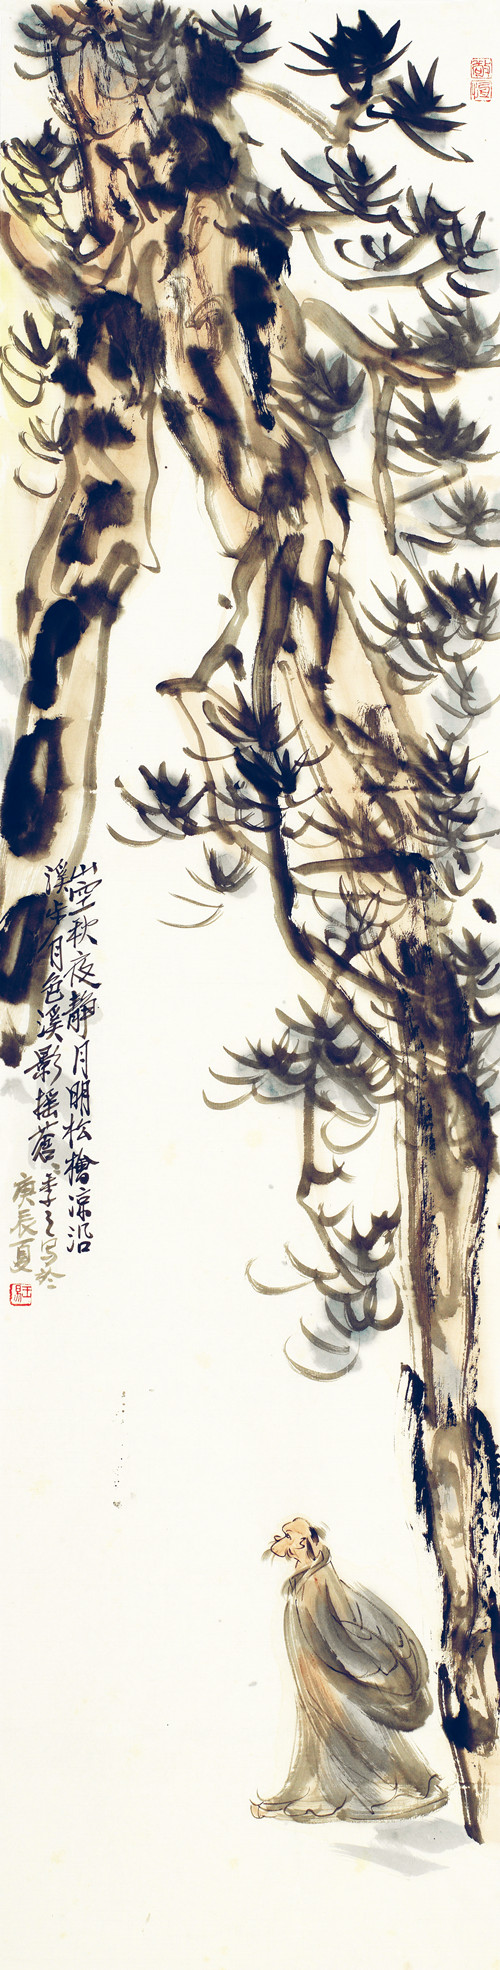 山空秋夜静月明松檜凉沿
溪步月色溪影摇蒼
季之写於
庚辰夏